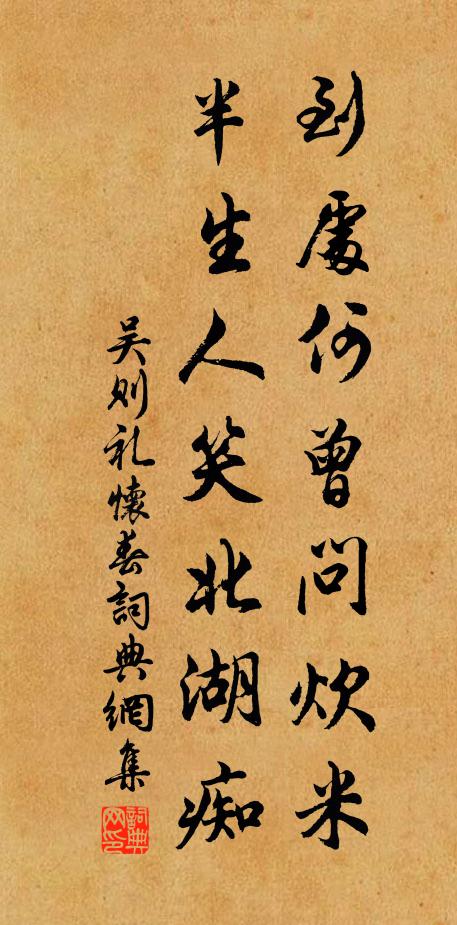 到處何曾問炊米
半生人笑北湖痴
吴则礼懷春詞典網集
詞典網印